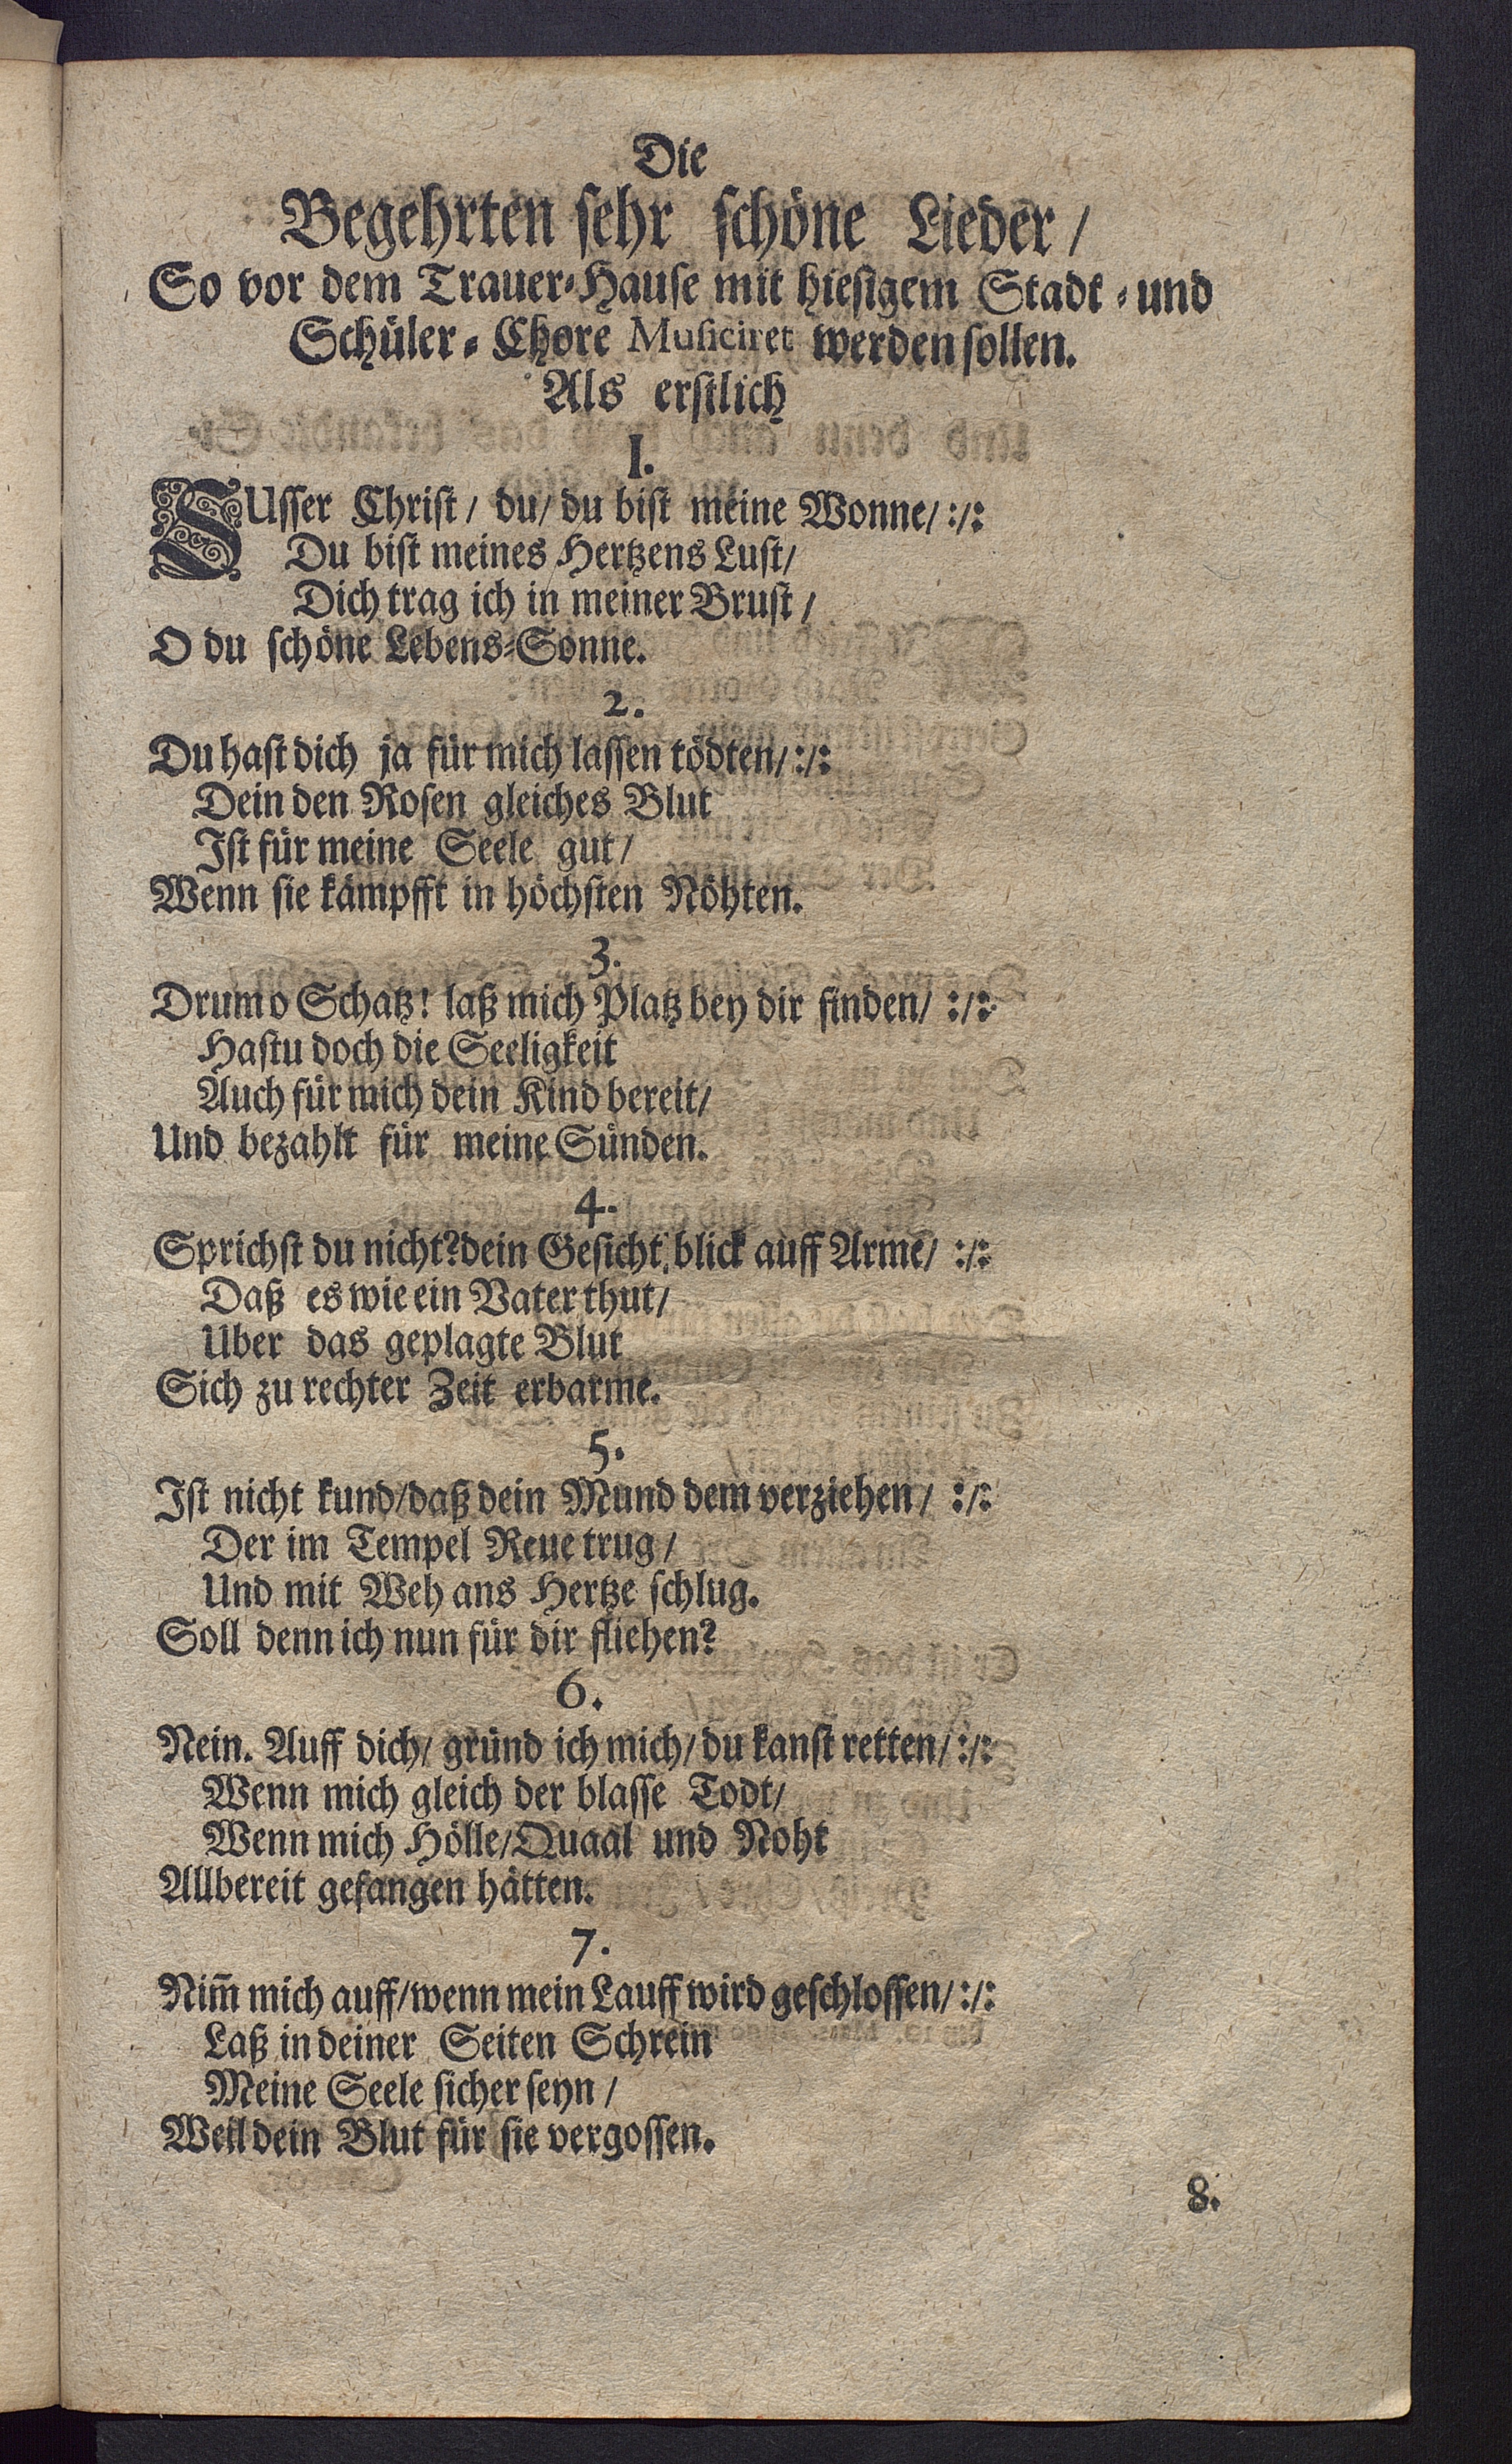 Die
Begehrten sehr schöne Lieder/
So vor dem Trauer-Hause mit hiesigem Stadt-und
Schüler-Chore Musiciret werden sollen.
Als erstlich
I.
SUsser Christ/ du/ du bist meine Wonne/:/:
Du bist meines Hertzens Lust/
Dich trag ich in meiner Brust/
O du schöne Lebens-Sonne.
2.
Du hast dich ja für mich lassen tödten/:/:
Dein den Rosen gleiches Blut
Ist für meine Seele gut/
Wenn sie kämpfft in höchsten Nöhten.
3.
Drum o Schatz! laß mich Platz bey dir finden/ :/:
Hastu doch die Seeligkeit
Auch für mich dein Kind bereit/
Und bezahlt für meine Sünden.
4.
Sprichst du nicht? dein Gesicht blick auff Arme/ :/:
Daß es wie ein Vater thut/
Uber das geplagte Blut
Sich zu rechter Zeit erbarme.
5.
Ist nicht kund/daß dein Mund dem verziehen/ :/:
Der im Tempel Reue trug/
Und mit Weh ans Hertze schlug.
Soll denn ich nun für dir fliehen?
6.
Nein. Auff dich/ gründ ich mich/ du kanst retten/:/:
Wenn mich gleich der blasse Todt/
Wenn mich Hölle/Quaal und Noht
Allbereit gefangen hätten.
7.
Nim̃ mich auff/wenn mein Lauff wird geschlossen/:/:
Laß in deiner Seiten Schrein
Meine Seele sicher seyn/
Weil dein Blut für sie vergossen.
8.